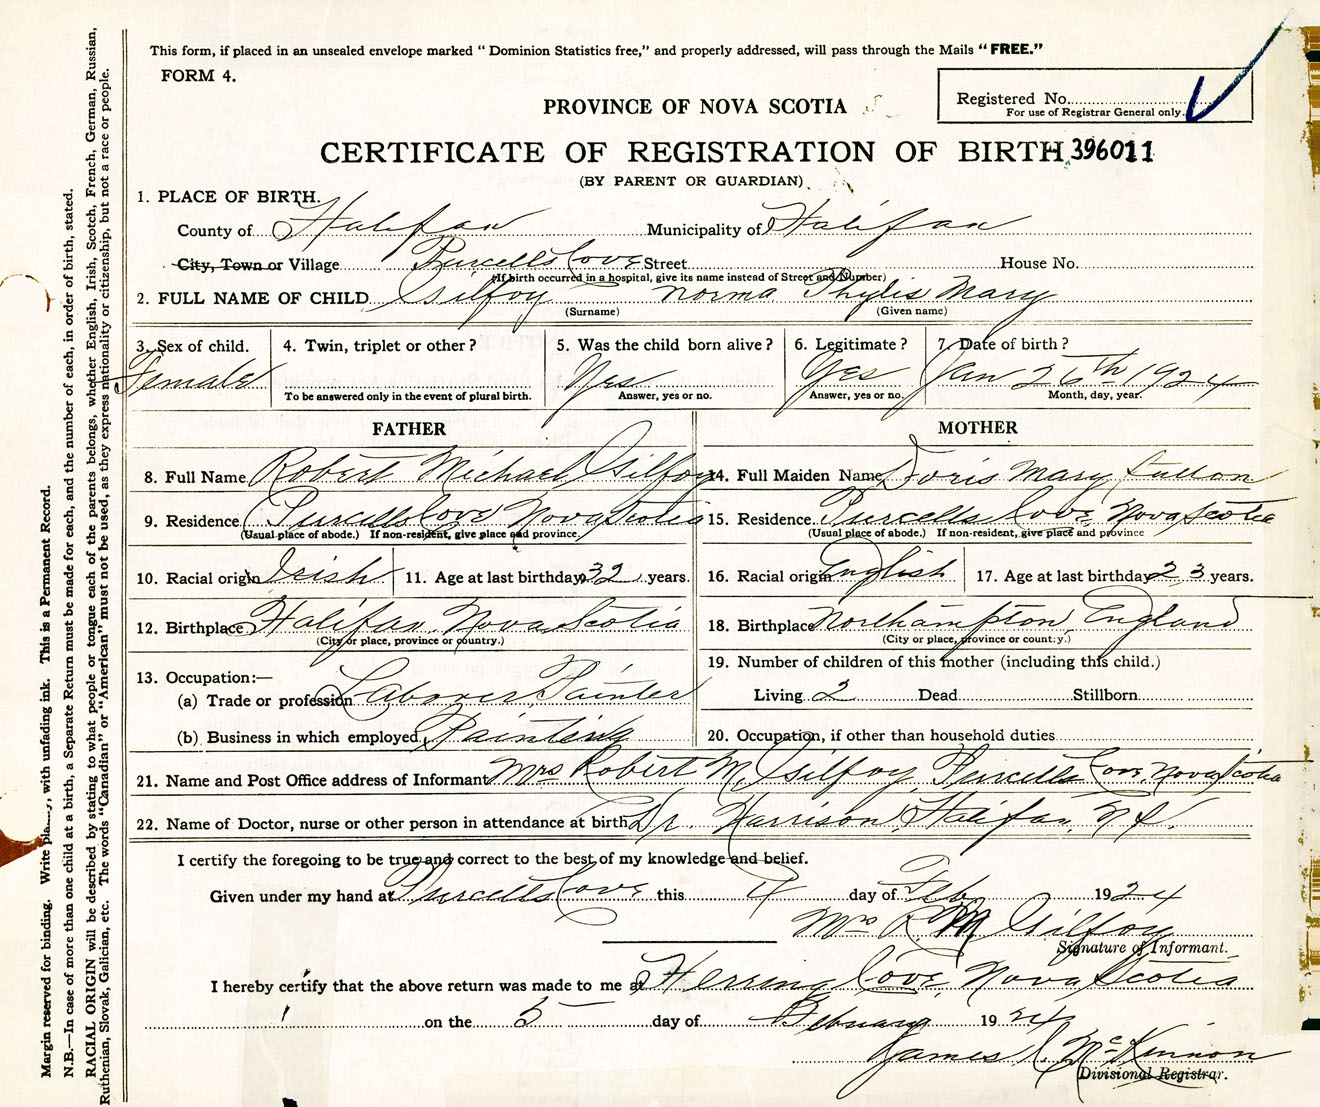 This form, if placed in an unsealed envelope marked “ Dominion Statistics free,” and properly addressed, will pass through the Mails “ FREE.”
FORM 4.
Registered No.
For use of Registrar General only.
PROVINCE OF NOVA SCOTIA
CERTIFICATE OF REGISTRATION OF BIRTH 396011
(BY PARENT OR GUARDIAN)
1. PLACE OF BIRTH.
County of Halifax Municipality of Halifax
City, Town or Village Purcells Cove Street House No.
(If birth occurred in a hospital, give its name instead of Street and Number)
2. FULL NAME OF CHILD Gilfoy Norma Phylis Mary
(Surname) (Given name)
3. Sex of child. 4. Twin, triplet or other ? 5. Was the child born alive ? 6. Legitimate ? 7. Date of birth ?
Female Yes Yes Jan 26th 1924
To be answered only in the event of plural birth. Answer, yes or no. Answer, yes or no. Month, day, year.
FATHER MOTHER
8. Full Name Robert Michael Gilfoy 14. Full Maiden Name Doris Mary Fulton
9. Residence Purcells Cove Nova Scotia 15. Residence Purcells Cove, Nova Scotia
(Usual place of abode.) If non-resident, give place and province. (Usual place of abode.) If non-resident, give place and province
10. Racial origin Irish 11. Age at last birthday 32 years. 16. Racial origin English 17. Age at last birthday 23 years.
12. Birthplace Halifax, Nova Scotia 18. Birthplace Northampton, England
(City or place, province or country.) (City or place, province or country.)
13. Occupation:— 19. Number of children of this mother (including this child.)
(a) Trade or profession Laborer, Painter Living 2 Dead Stillborn
(b) Business in which employed Painting 20. Occupation, if other than household duties
21. Name and Post Office address of Informant Mrs Robert M. Gilfoy, Purcells Cove, Nova Scotia
22. Name of Doctor, nurse or other person in attendance at birth Dr. Harrison, Halifax, N.S.
I certify the foregoing to be true and correct to the best of my knowledge and belief.
Given under my hand at Purcells Cove this 4 day of Feb 1924
Mrs R M Gilfoy
Signature of Informant.
I hereby certify that the above return was made to me at Herring Cove, Nova Scotia
on the 5 day of February 1924
James McKinnon
Divisional Registrar.
Margin reserved for binding. Write with unfading ink. This is a Permanent Record.
N.B.—In case of more than one child at a birth, a Separate Return must be made for each, and the number of each, in order of birth, stated.
RACIAL ORIGIN will be described by stating to what people or tongue each of the parents belongs, whether English, Irish, Scotch, French, German, Russian,
Ruthenian, Slovak, Galician, etc. The words “Canadian” or “American” must not be used, as they express nationality or citizenship, but not a race or people.